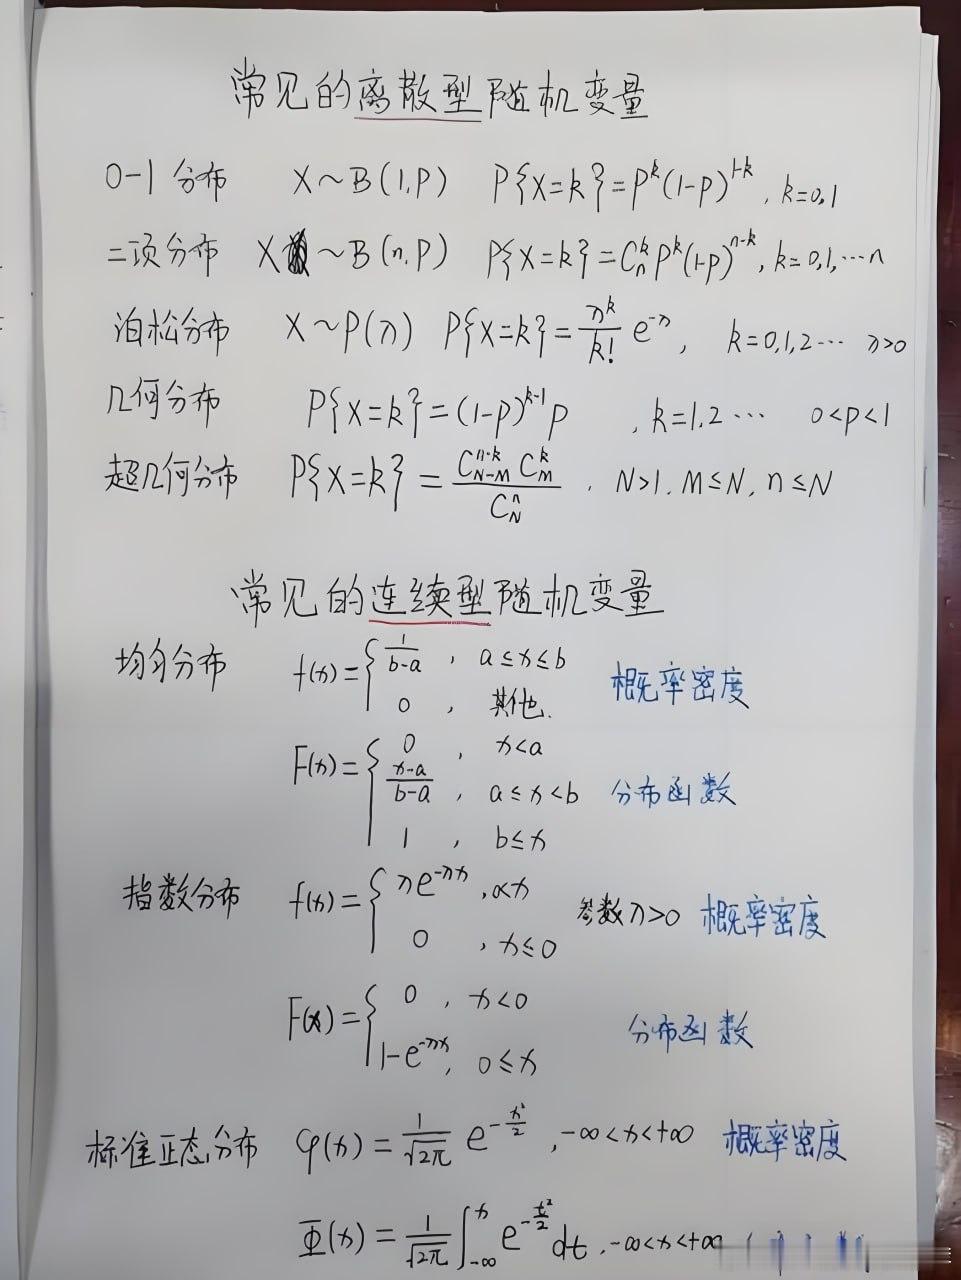 常见的离散型随机变量
0-1分布 X~B(1,P) P{X=k}=P^k(1-P)^{1-k}, k=0,1
二项分布 X~B(n,P) P{X=k}=C_n^k P^k(1-P)^{n-k}, k=0,1,…n
泊松分布 X~P(λ) P{X=k}=\frac{λ^k}{k!}e^{-λ}, k=0,1,2… λ>0
几何分布 P{X=k}=(1-P)^{k-1}P, k=1,2… 0<P<1
超几何分布 P{X=k}=\frac{C_{N-M}^{n-k}C_M^k}{C_N^n}, N>1, M≤N, n≤N
常见的连续型随机变量
均匀分布 f(x)={\frac{1}{b-a}, a≤x≤b 概率密度
0, 其他.
F(x)={0, x<a
\frac{x-a}{b-a}, a≤x<b 分布函数
1, b≤x
指数分布 f(x)={λe^{-λx}, 0<x 参数λ>0 概率密度
0, x≤0
F(x)={0, x<0 分布函数
1-e^{-λx}, 0≤x
标准正态分布 φ(x)=\frac{1}{\sqrt{2π}}e^{-\frac{x^2}{2}}, -∞<x<+∞ 概率密度
Φ(x)=\frac{1}{\sqrt{2π}}∫_{-∞}^{x}e^{-\frac{t^2}{2}}dt, -∞<x<+∞